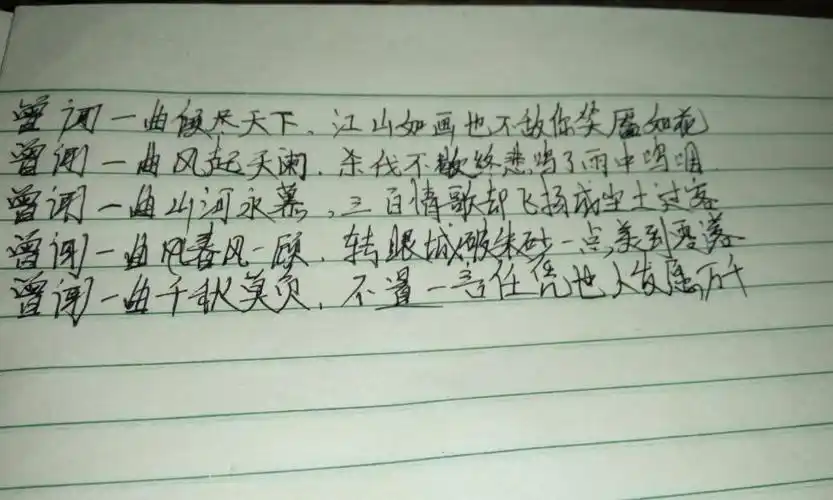 曾闻一曲倾尽天下、江山如画也不敌你笑靥如花
曾闻一曲风起天阑、杀伐不敌终悲鸣了雨中鸣咽
曾闻一曲山河永慕、三百情歌却飞扬成尘土过客
曾闻一曲春风一顾、转眼城破朱砂一点美到零落
曾闻一曲千秋莫负、不置一言任凭他人发愿万千